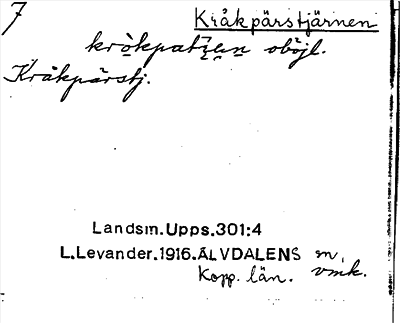 7 Kråkpärstjärnen
kròkpatzen oböjl.
Kråkpärstj.
Landsm.Upps.301:4
L.Levander.1916.ÄLVDALENS sn,
Kopp. län. vmk.